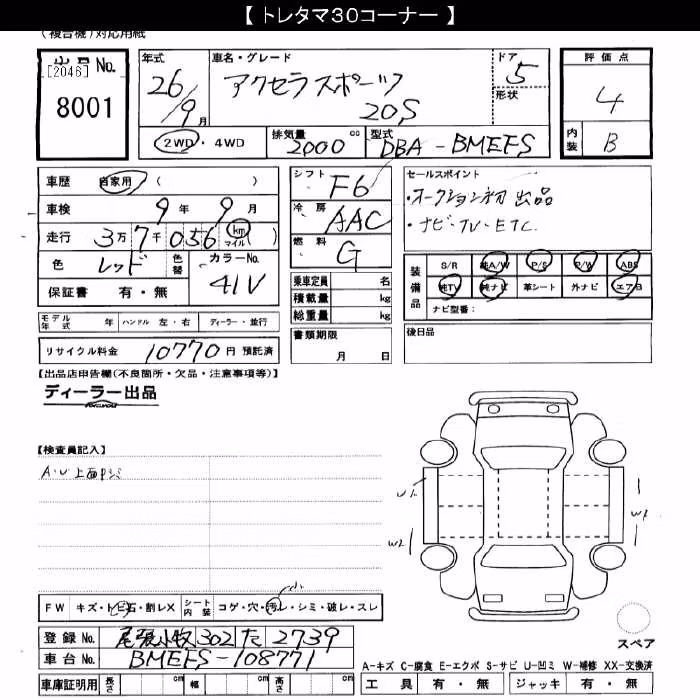 【 トレタマ30コーナー 】
(複合機)対応用紙
出品 No.
[2046]
8001
年式 26/9月
車名・グレード
アクセラスポーツ
20S
ドア 5
形状
評価点
4
内装 B
2WD・4WD
排気量 2000 cc
型式 DBA-BMEFS
車歴 自家用 ( )
車検 9年 9月
走行 3万 7千 056 km マイル ( )
色 レッド
色替
カラーNo. 41V
保証書 有・無
シフト F6
冷房 AAC
燃料 G
乗車定員 名
積載量 kg
総重量 kg
セールスポイント
・オークション初出品
・ナビ・TV・ETC.
装備品
S/R 純A/W P/S P/W ABS
純TV 純ナビ 革シート 外ナビ エアB
ナビ型番:
モデル年式 年 ハンドル 左・右 ディーラー・並行
書類期限
月 日
後日品
リサイクル料金 10770 円 預託済
【出品店申告欄(不良箇所・欠品・注意事項等)】
ディーラー出品
【検査員記入】
U1
W2
FW キズ・トビ石・割レX
シート内装 コゲ・穴・汚レ・シミ・破レ・スレ
スペア
登録 No. 尾張小牧 302 た 2739
車台 No. BMEFS-108771
車庫証明用 長さ cm 幅 cm 高さ cm
A-キズ C-腐食 E-エクボ S-サビ U-凹ミ W-補修 XX-交換済
工具 有・無 ジャッキ 有・無